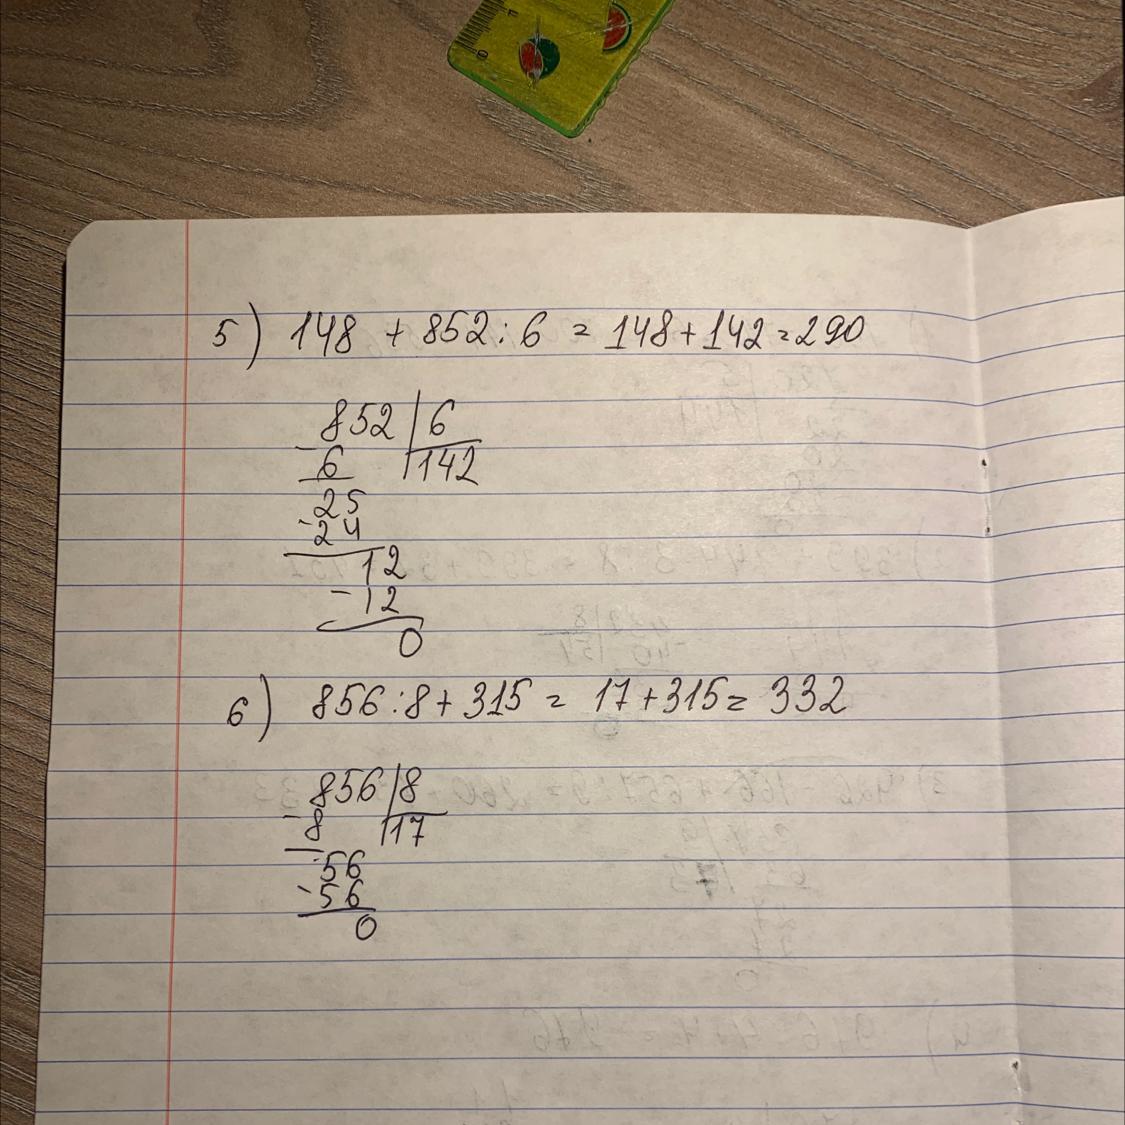 5) 148 + 852 : 6 = 148 + 142 = 290
852 | 6
- 6 | 142
25
- 24
12
- 12
0
6) 856 : 8 + 315 = 17 + 315 = 332
856 | 8
- 8 | 17
56
- 56
0